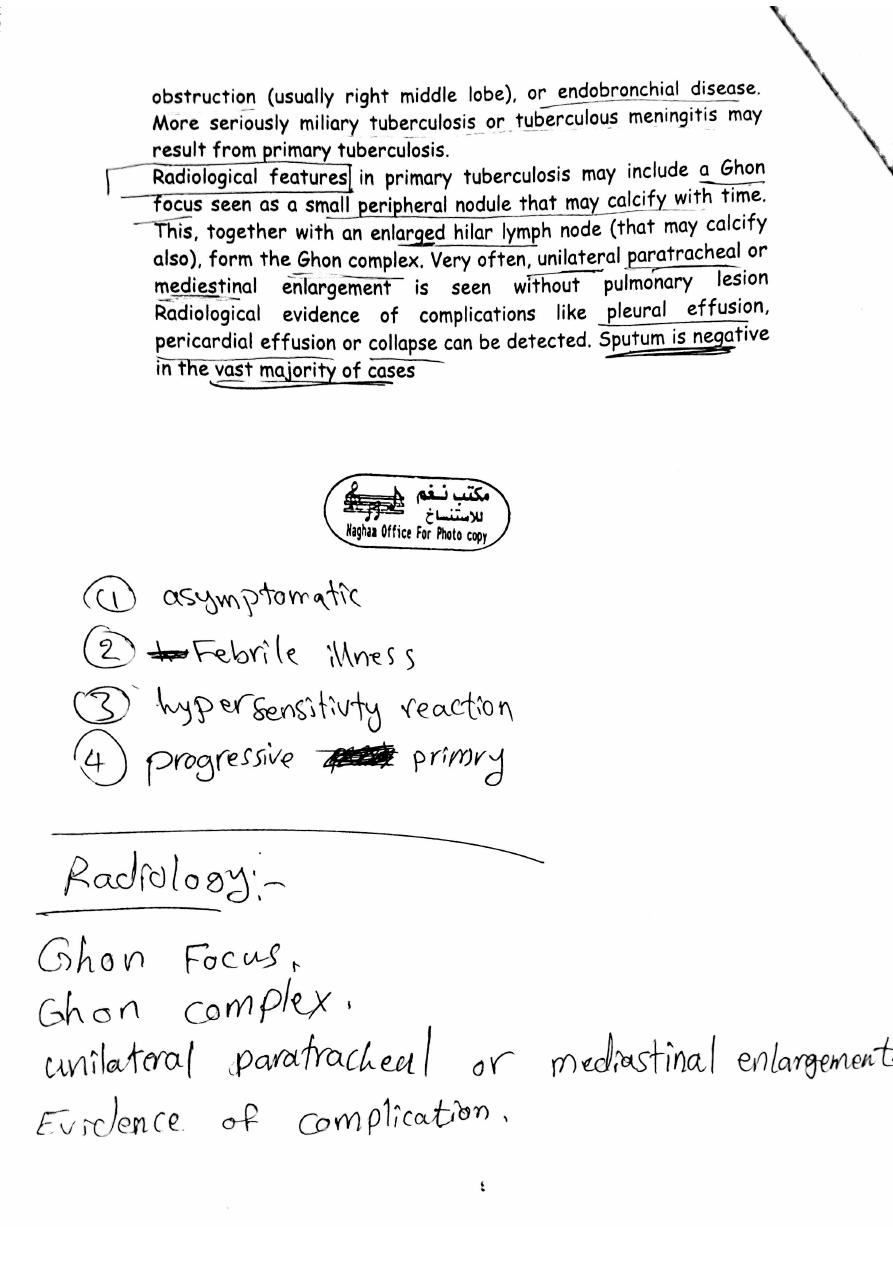 obstruction (usually right middle lobe), or endobronchial disease.
More seriously miliary tuberculosis or tuberculous meningitis may
result from primary tuberculosis.
Radiological features in primary tuberculosis may include a Ghon
focus seen as a small peripheral nodule that may calcify with time.
This, together with an enlarged hilar lymph node (that may calcify
also), form the Ghon complex. Very often, unilateral paratracheal or
mediestinal enlargement is seen without pulmonary lesion
Radiological evidence of complications like pleural effusion,
pericardial effusion or collapse can be detected. Sputum is negative
in the vast majority of cases
مكتب نغم
للاستنساخ
Nagham Office For Photo copy
1 asymptomatic
2 Febrile illness
3 hypersensitivty reaction
4 progressive primry
Radiology:-
Ghon Focus.
Ghon complex.
unilateral paratracheal or mediastinal enlargement
Evidence of complication.
٤